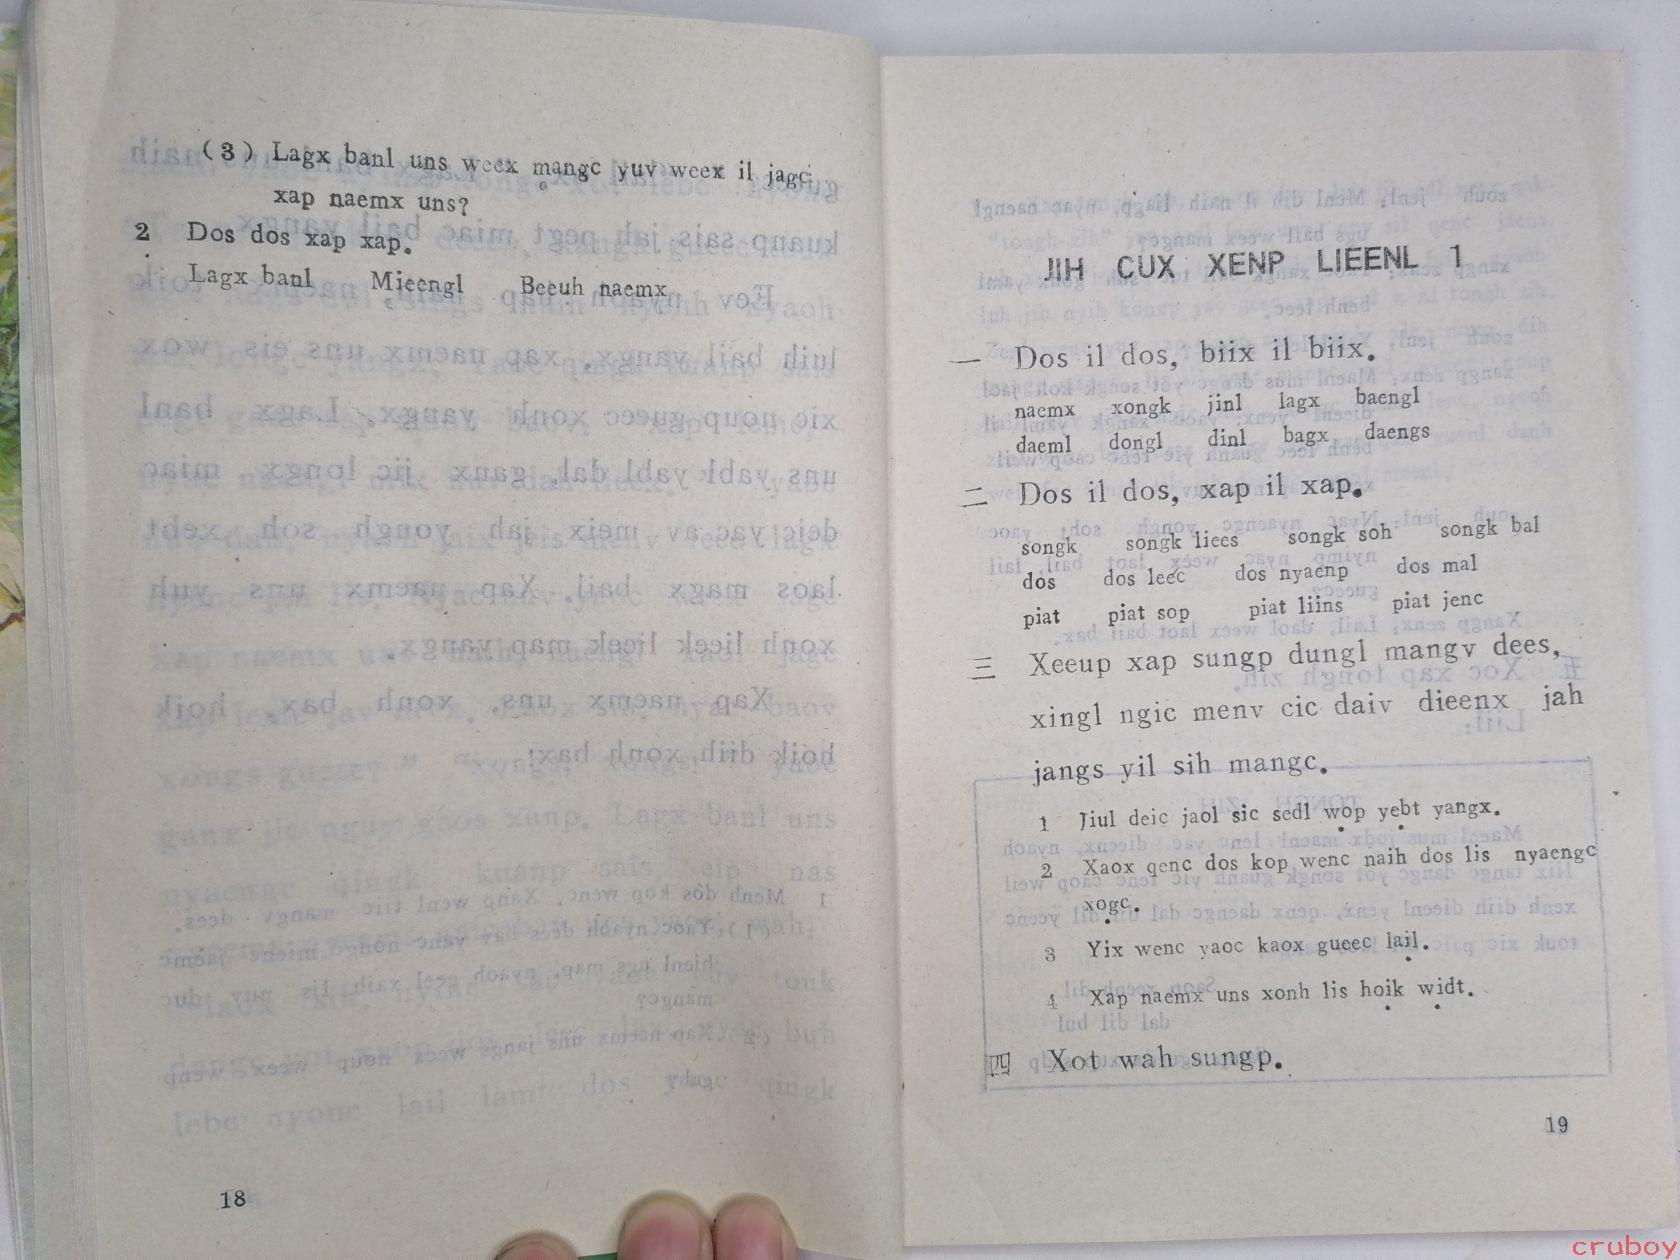 (3) Lagx banl uns weex mangc yuv weex il jagc
xap naemx uns?
2 Dos dos xap xap.
Lagx banl Mieengl Beeuh naemx
18
JIH CUX XENP LIEENL 1
一 Dos il dos, biix il biix.
naemx xongk jinl lagx baengl
daeml dongl dinl bagx daengs
二 Dos il dos, xap il xap.
songk songk liees songk soh songk bal
dos dos leec dos nyaenp dos mal
piat piat sop piat liins piat jenc
三 Xeeup xap sungp dungl mangv dees,
xingl ngic menv cic daiv dieenx jah
jangs yil sih mangc.
1 Jiul deic jaol sic sedl wop yebt yangx.
2 Xaox qenc dos kop wenc naih dos lis nyaengc
xogc.
3 Yix wenc yaoc kaox gueec lail.
4 Xap naemx uns xonh lis hoik widt.
四 Xot wah sungp.
19
cruboy